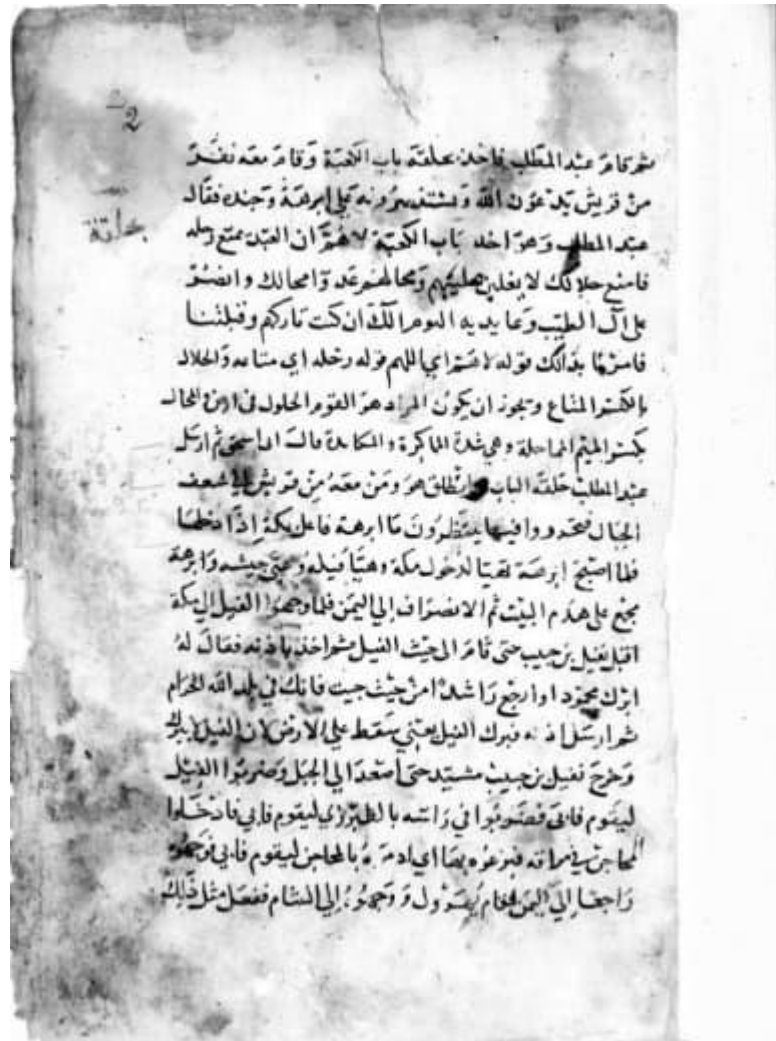 2
ثم قام عبد المطلب فاخذ بحلقة باب الكعبة وقام معه نفر
من قريش يدعون الله ويستنصرونه على ابرهة وجنده فقال
عبد المطلب وهو اخذ باب الكعبة لاهم ان العبد يمنع رحله
فامنع حلالك لا يغلبن صليبهم ومحالهم عدوا محالك وانصر
على آل الصليب وعابديه اليوم آلك ان كنت تاركهم وقبلتنا
فامر ما بدالك قوله لاهم اي اللهم قوله رحله اي متاعه والحلال
بالكسر المتاع ويجوز ان يكون المراد هو القوم الحلول في والمحال
بكسر الميم المماحلة وهي شدة المماكرة والمكايدة قال ابن اسحق ثم ارسل
عبد المطلب حلقة الباب وانطلق هو ومن معه من قريش الى شعف
الجبال فتحرزوا فيها ينتظرون ما ابرهة فاعل بمكة اذا دخلها
فلما اصبح ابرهة تهيا لدخول مكة وهيا فيله وعبى جيشه وابرهة
مجمع على هدم البيت ثم الانصراف الي اليمن فلما وجهوا الفيل الي مكة
اقبل نفيل بن حبيب حتى قام الى جنب الفيل ثم اخذ باذنه فقال له
ابرك محمود او ارجع راشدا من حيث جيت فانك في بلد الله الحرام
ثم ارسل اذنه فبرك الفيل يعني سقط علي الارض لان الفيل لا يبرك
وخرج نفيل بن حبيب يشتد حتى اصعد الي الجبل وضربوا الفيل
ليقوم فابى فضربوا في راسه بالطبرزي ليقوم فابي فادخلوا
المحاجن في مراقه فبزغوه بها اي ادموه بالمحاجن ليقوم فابى فوجهوه
راجعا الي اليمن فقام يهرول ووجهوه الي الشام ففعل مثل ذلك